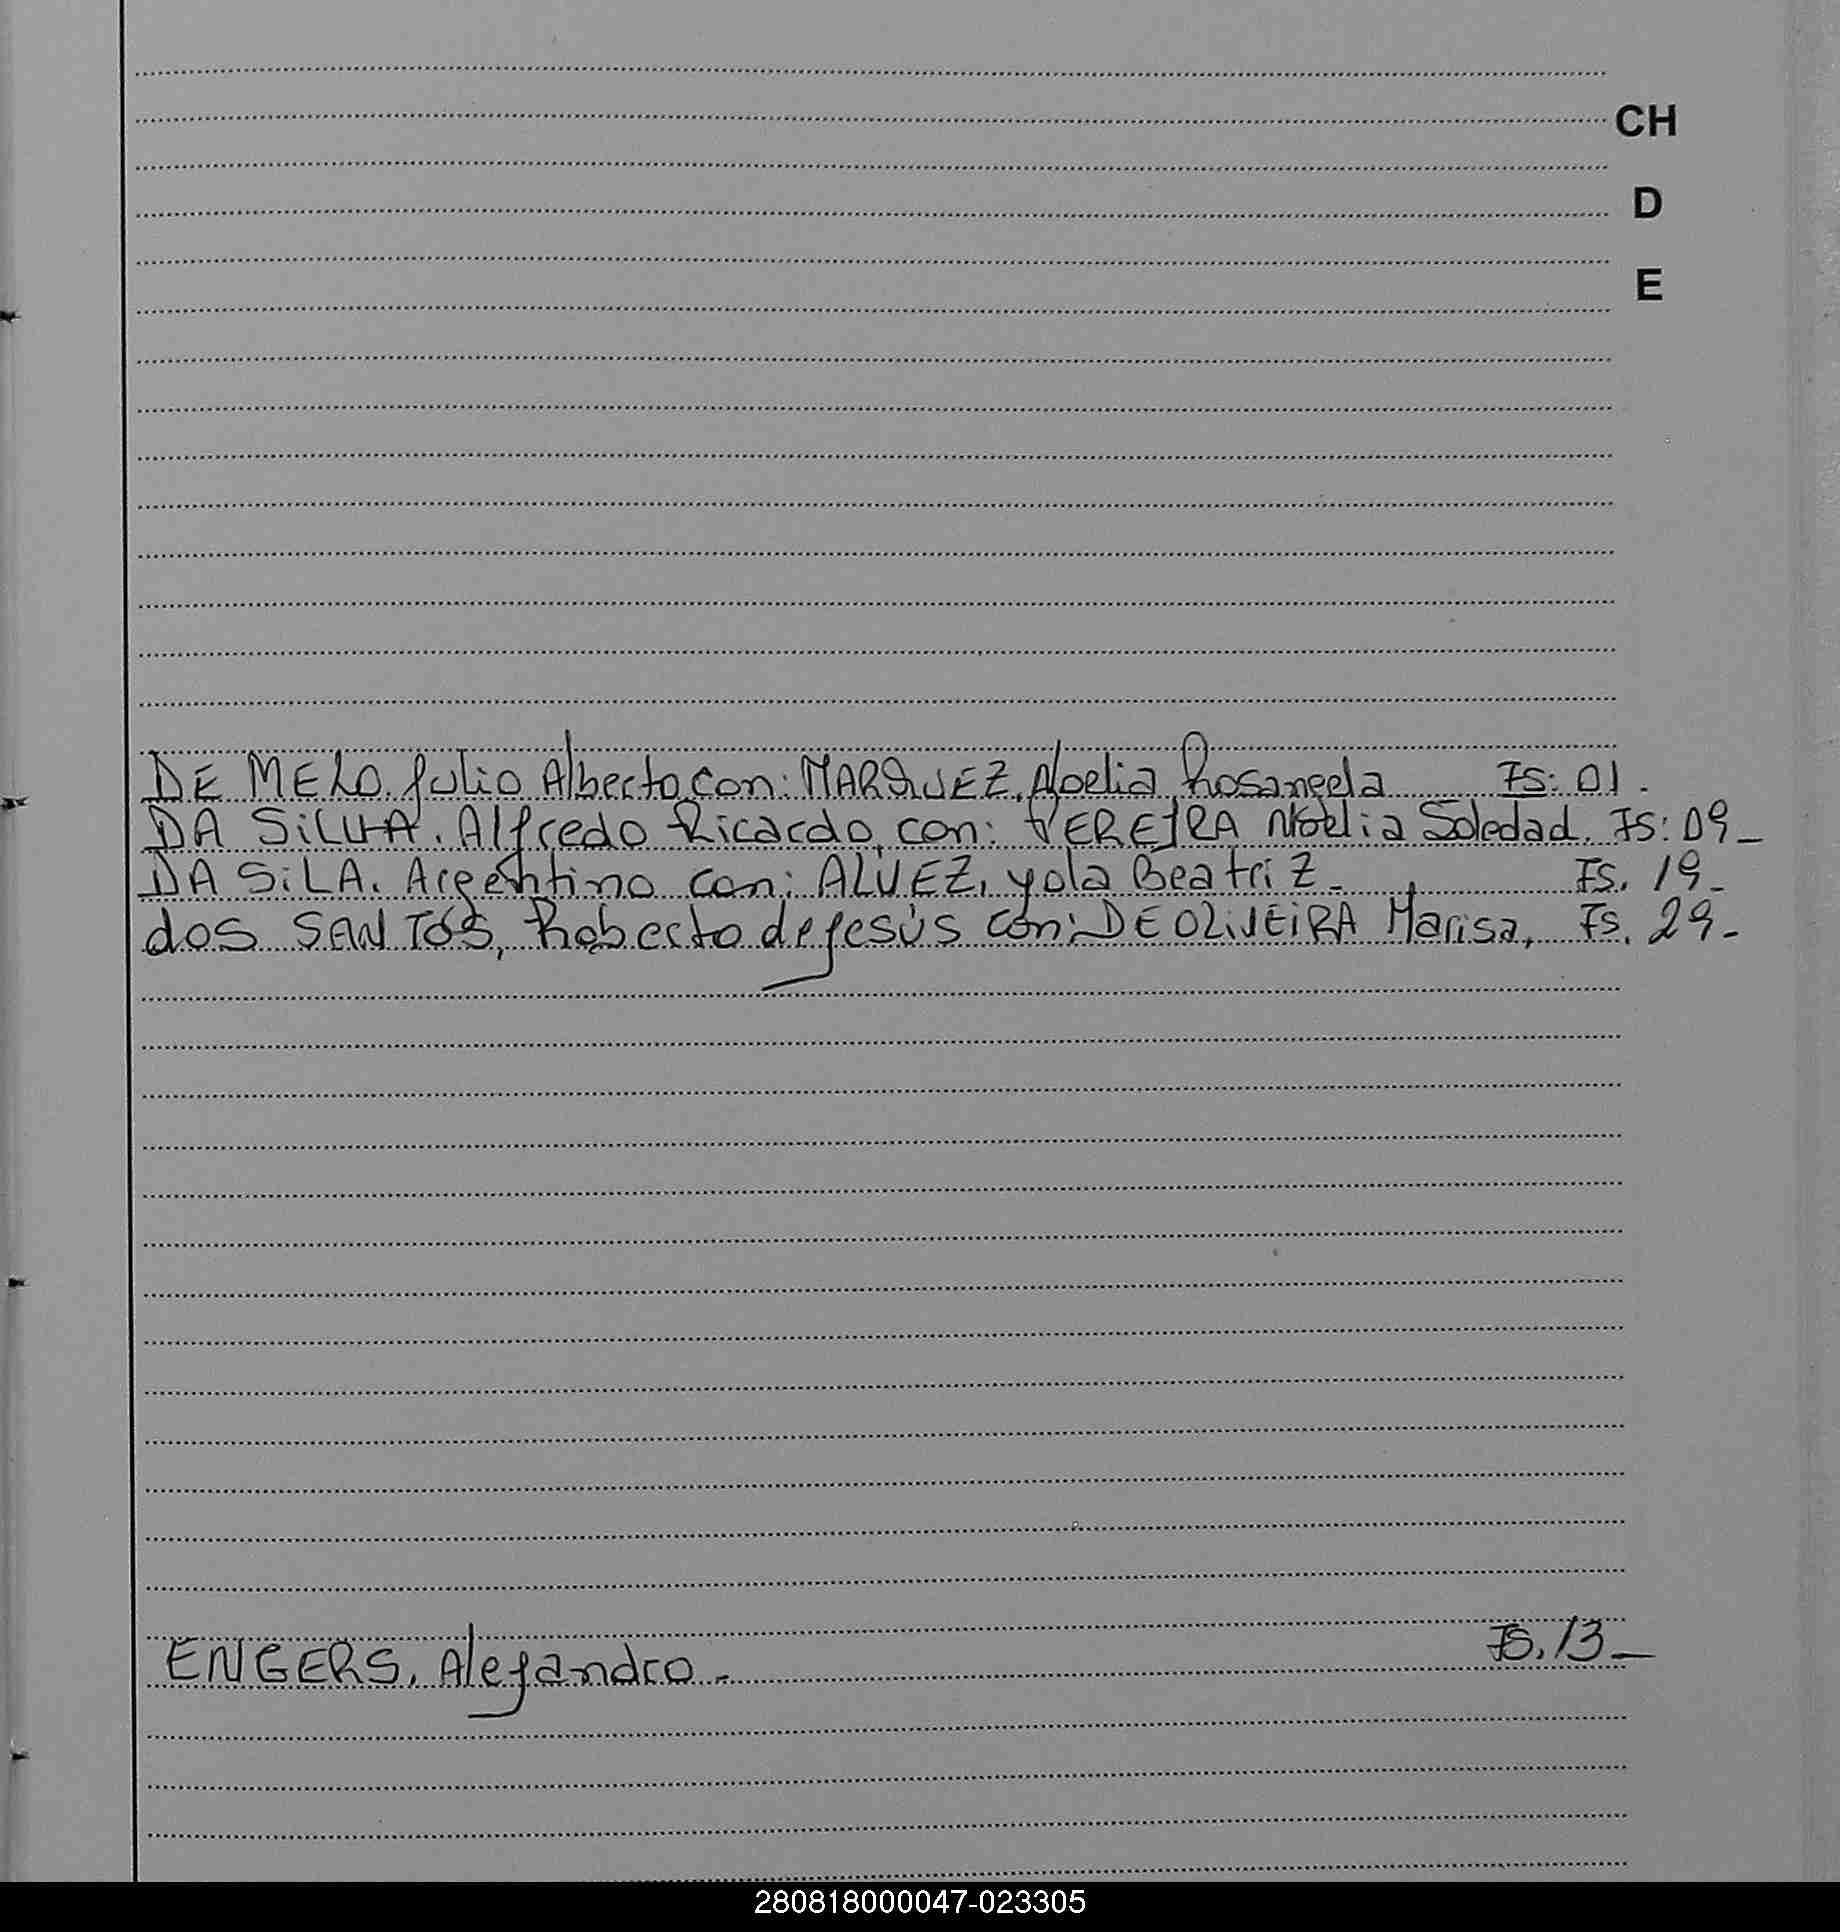 CH
D
E
DE MELO. Julio Alberto con: MARQUEZ, Noelia Rosangela Fs: 01.
DA SiLVA. Alfredo Ricardo, con: PEREJRA Noelia Soledad. Fs: 09_
DA SiLA. Argentino con: ALVEZ, yola BeatriZ_ Fs. 19_
dos SANTOS, Roberto de jesús con: DE OLiVEiRA Marisa, Fs. 29_
ENGERS, Alejandro_ Fs. 13_
280818000047-023305